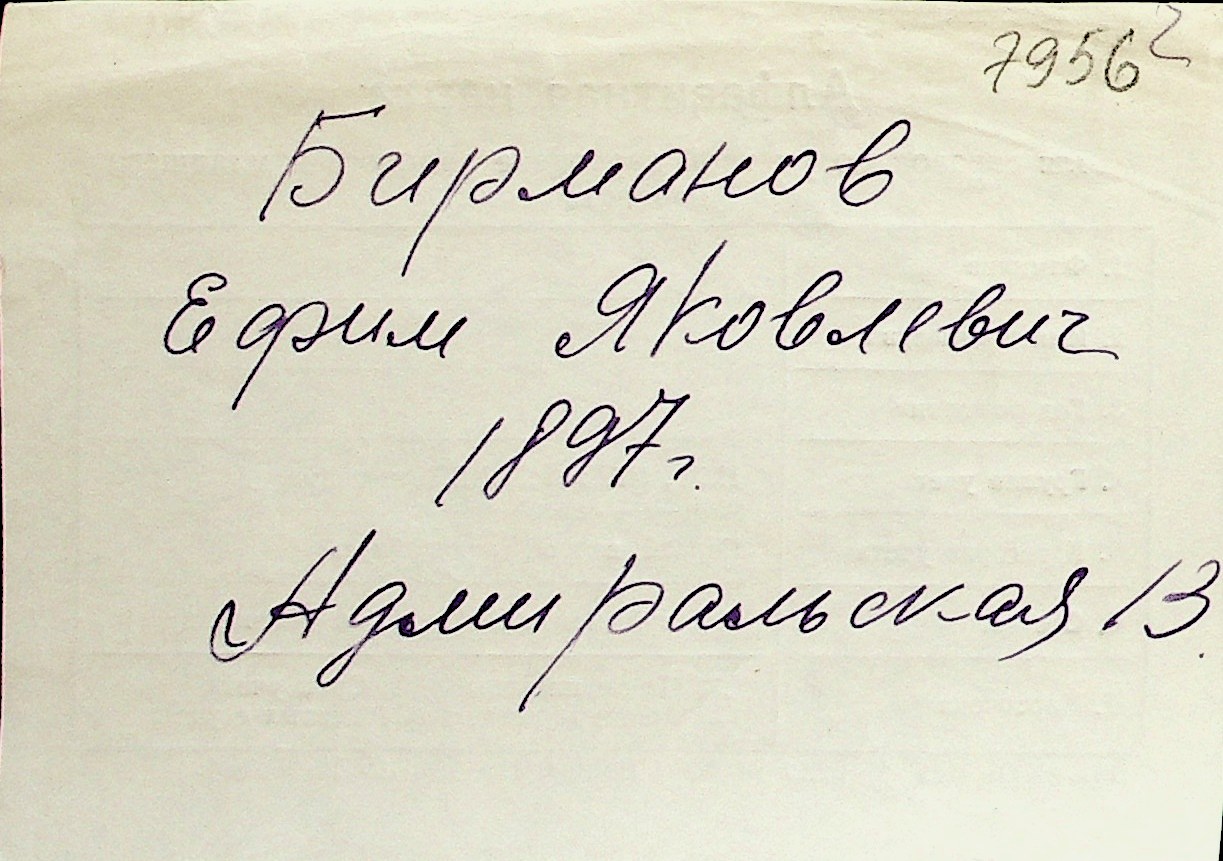 7956²
Бирманов
Ефим Яковлевич
1897 г.
Адмиральская 13.